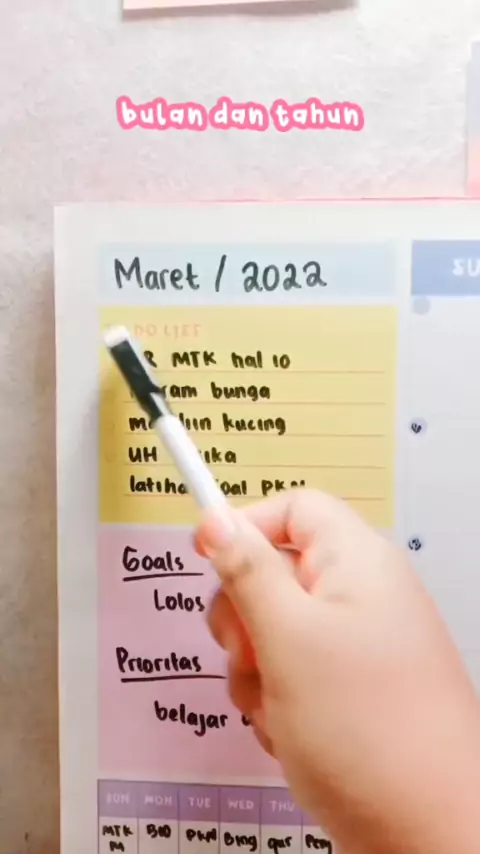 bulan dan tahun
Maret / 2022
SU
DO LIST
MTK hal 10
bunga
kucing
UH
PKN
Goals
Lolos
Prioritas
belajar
SUN MON TUE WED THU
MTK BIO PKN BIng qur Pem
M